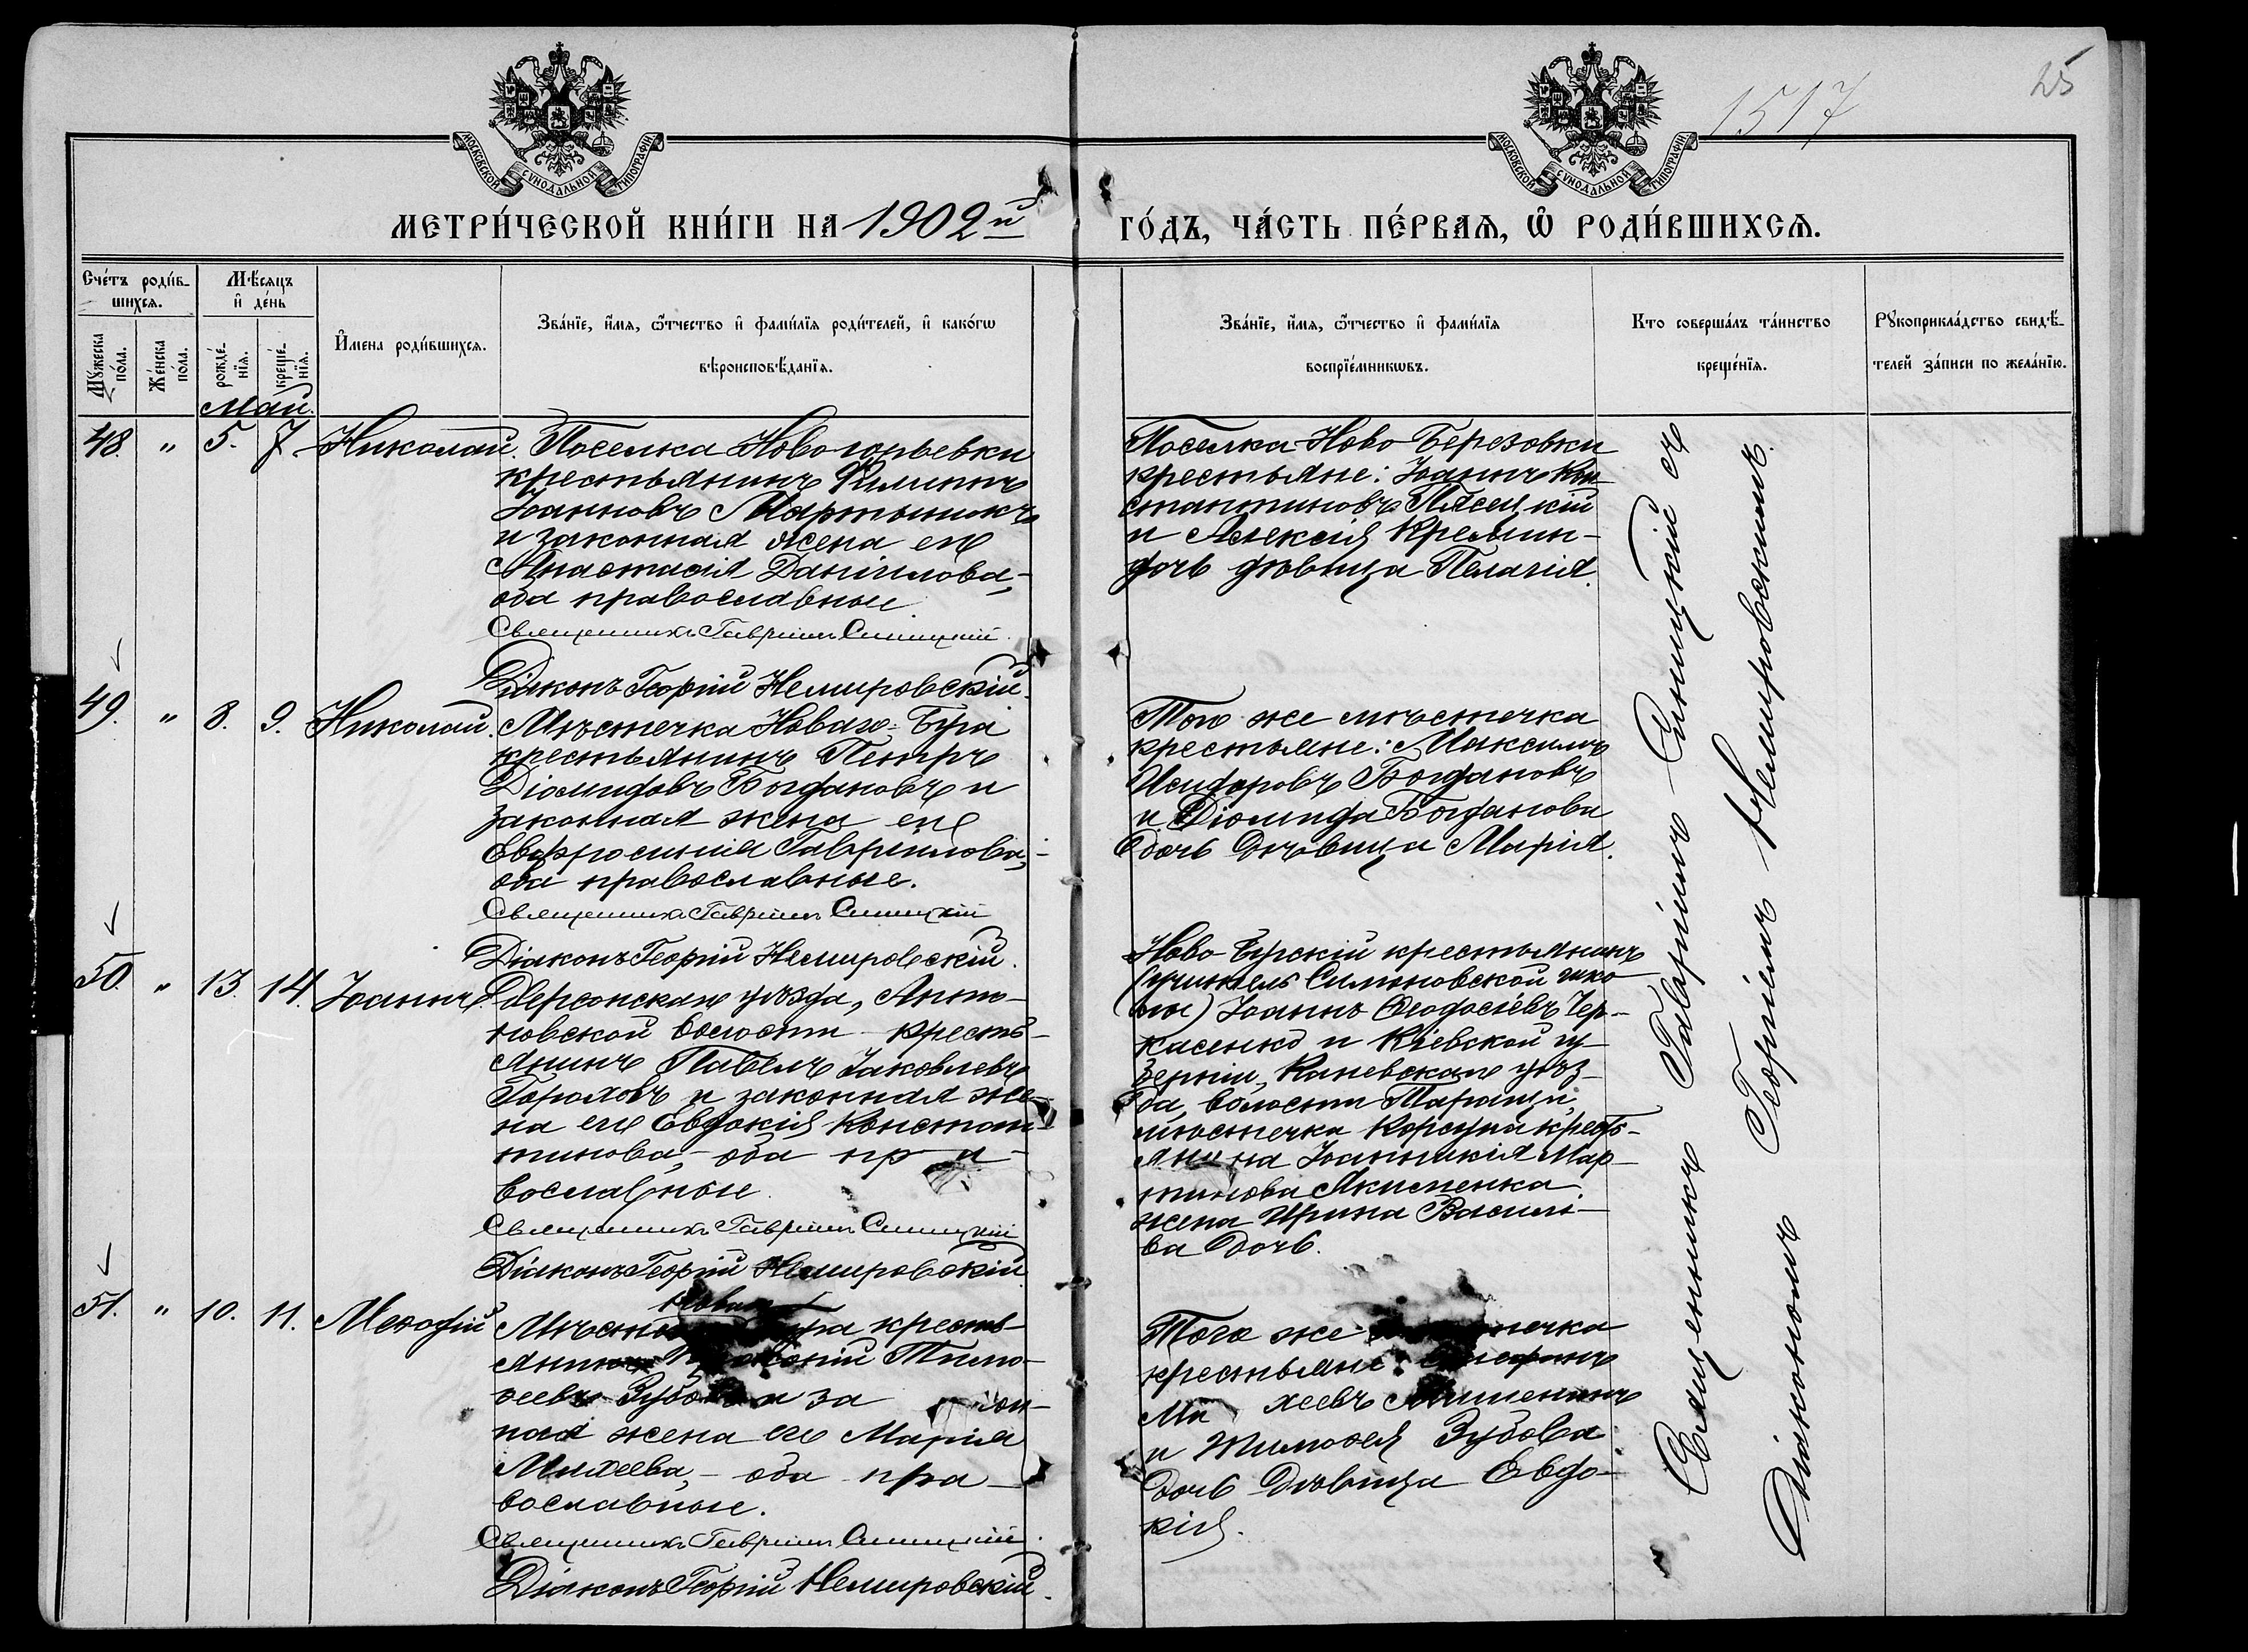 25
1517
МОСКОВСКОЙ СѴНОДАЛЬНОЙ ТИПОГРАФІИ.
МОСКОВСКОЙ СѴНОДАЛЬНОЙ ТИПОГРАФІИ.
МЕТРИ́ЧЕСКОЙ КНИ́ГИ НА 1902й
ГО́ДЪ, ЧА́СТЬ ПЕ́РВАѦ, Ѡ҆ РОДИ́ВШИХСѦ.
Сче́тъ роди́в-
шихсѧ.
Мꙋжеска по́ла.
Же́нска по́ла.
Мѣ́сѧцъ
и҆ де́нь
рожде́нїѧ.
креще́нїѧ.
И҆мена роди́вшихсѧ.
Зва́нїе, и҆́мѧ, ѻ҆́тчество и҆ фами́лїѧ роди́телей, и҆ како́гѡ
вѣроисповѣ́данїѧ.
Зва́нїе, и҆́мѧ, ѻ҆́тчество и҆ фами́лїѧ
воспрїе́мникѡвъ.
Кто соверша́лъ та́инство
креще́нїѧ.
Рꙋкоприкла́дство свидѣ́-
телей за́писи по жела́нїю.
Май.
48. " 5. 7. Николай.
Поселка Новоюрьевки
крестьянинъ Филиппъ
Іоанновъ Мартынюкъ
и законная жена его
Анастасія Даніилова,-
оба православные.
Священникъ Гавріилъ Синицкій.
Діаконъ Георгій Немировскій.
Поселка Ново Березовки
крестьяне: Іоаннъ Кон-
стантиновъ Пясецкій
и Алексія Кремин-
дочь дѣвица Пелагія.
49. " 8. 9. Николай.
Мѣстечка Новаго-Буга
крестьянинъ Петръ
Діомидовъ Богдановъ и
законная жена его
Евфросинія Гавриилова,-
оба православные.
Священникъ Гавріилъ Синицкій
Діаконъ Георгій Немировскій.
Того же мѣстечка
крестьяне: Максимъ
Исидоровъ Богдановъ
и Діомида Богданова
дочь дѣвица Марія.
50. " 13. 14. Іоаннъ.
Херсонскаго уѣзда, Анто-
новской волости кресть-
янинъ Павелъ Іаковлевъ
Гороховъ и законная же-
на его Евдокія Констан-
тинова,- оба пра-
вославные.
Священникъ Гавріилъ Синицкій
Діаконъ Георгій Немировскій
Ново Бугскій крестьянинъ
(учитель Симоновской шко-
лы) Іоаннъ Ѳеодосіевъ Чер-
касенко и Кіевской гу-
берніи, Каневскаго уѣз-
да, волости Таращи,
мѣстечка Корсуна кресть-
янина Іоанникія Мар-
тинова Якименка
жена Ирина Василь-
ва дочь.
51. " 10. 11. Меѳодій
Новаго
Буга кресть-
янинъ Тимо-
ѳеевъ Зубовъ и закон-
ная жена его Марія
Михеева,- оба пра-
вославные.
Священникъ Гавріилъ Синицкій.
Діаконъ Георгій Немировскій.
Того же мѣстечка
крестьяне:
Михеевъ
и Тимоѳея Зубова
дочь дѣвица Евдо-
кія.
Священникъ Гавріилъ Синицкій съ
Діакономъ Георгіемъ Немировскимъ.